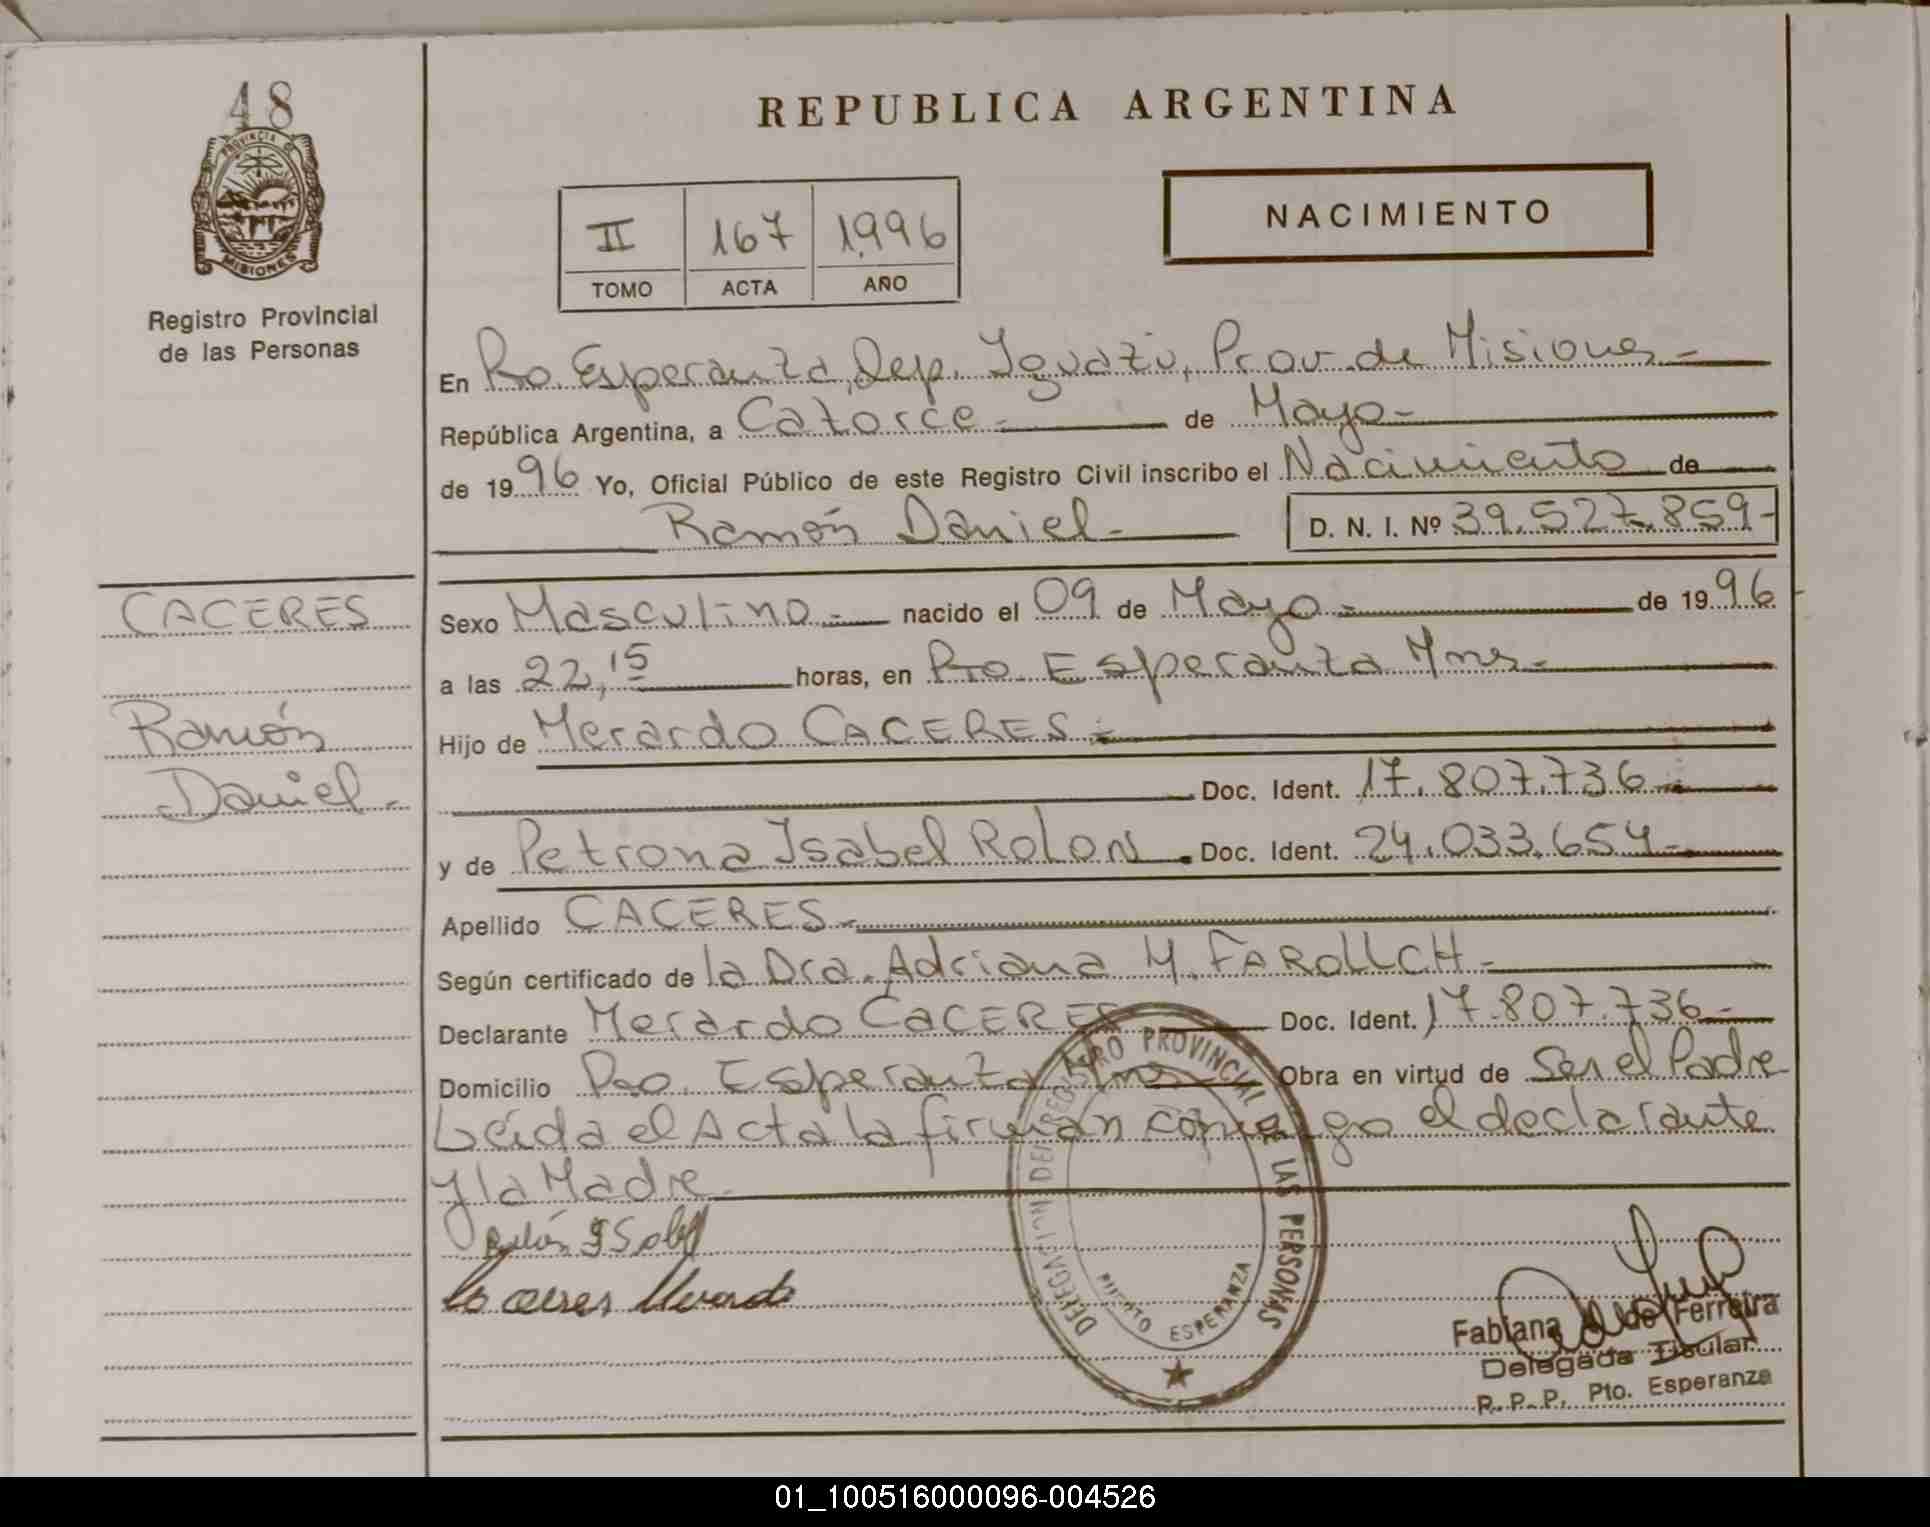 48
PROVINCIA DE
MISIONES
Registro Provincial
de las Personas
REPUBLICA ARGENTINA
II 167 1996
TOMO ACTA AÑO
NACIMIENTO
En Pto. Esperanza, Dep. Iguazú, Prov. de Misiones-
República Argentina, a Catorce- de Mayo-
de 1996 Yo, Oficial Público de este Registro Civil inscribo el Nacimiento de
Ramón Daniel- D. N. I. Nº 39.527.859-
CACERES
Ramón
Daniel-
Sexo Masculino- nacido el 09 de Mayo- de 1996
a las 22,15 horas, en Pto. Esperanza Mns-
Hijo de Merardo CACERES-
Doc. Ident. 17.807.736-
y de Petrona Isabel ROLON. Doc. Ident. 24.033.654-
Apellido CACERES-
Según certificado de la Dra. Adriana M. FAROLLCH-
Declarante Merardo CACERES Doc. Ident. 17.807.736-
Domicilio Pto. Esperanza Mns Obra en virtud de Ser el Padre
Leída el Acta la firman conmigo el declarante
y la Madre-
Rolón ISabel
Caceres Merardo
DELEGACION DEL REGISTRO PROVINCIAL DE LAS PERSONAS
PUERTO ESPERANZA
Fabiana de Ferreira
Delegada Titular
R. P. P. Pto. Esperanza
01_100516000096-004526